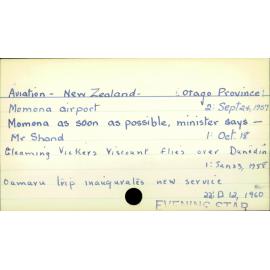 Aviation - New Zealand - (Otago Province)
Momona airport 2: Sept 24, 1957
Momona as soon as possible, minister says -
Mr Shand 1: Oct. 18
Gleaming Vickers Viscount flies over Dunedin
1: Jan 23, 1958
Oamaru trip inaugurates new service
22: D 12, 1960
EVENING STAR